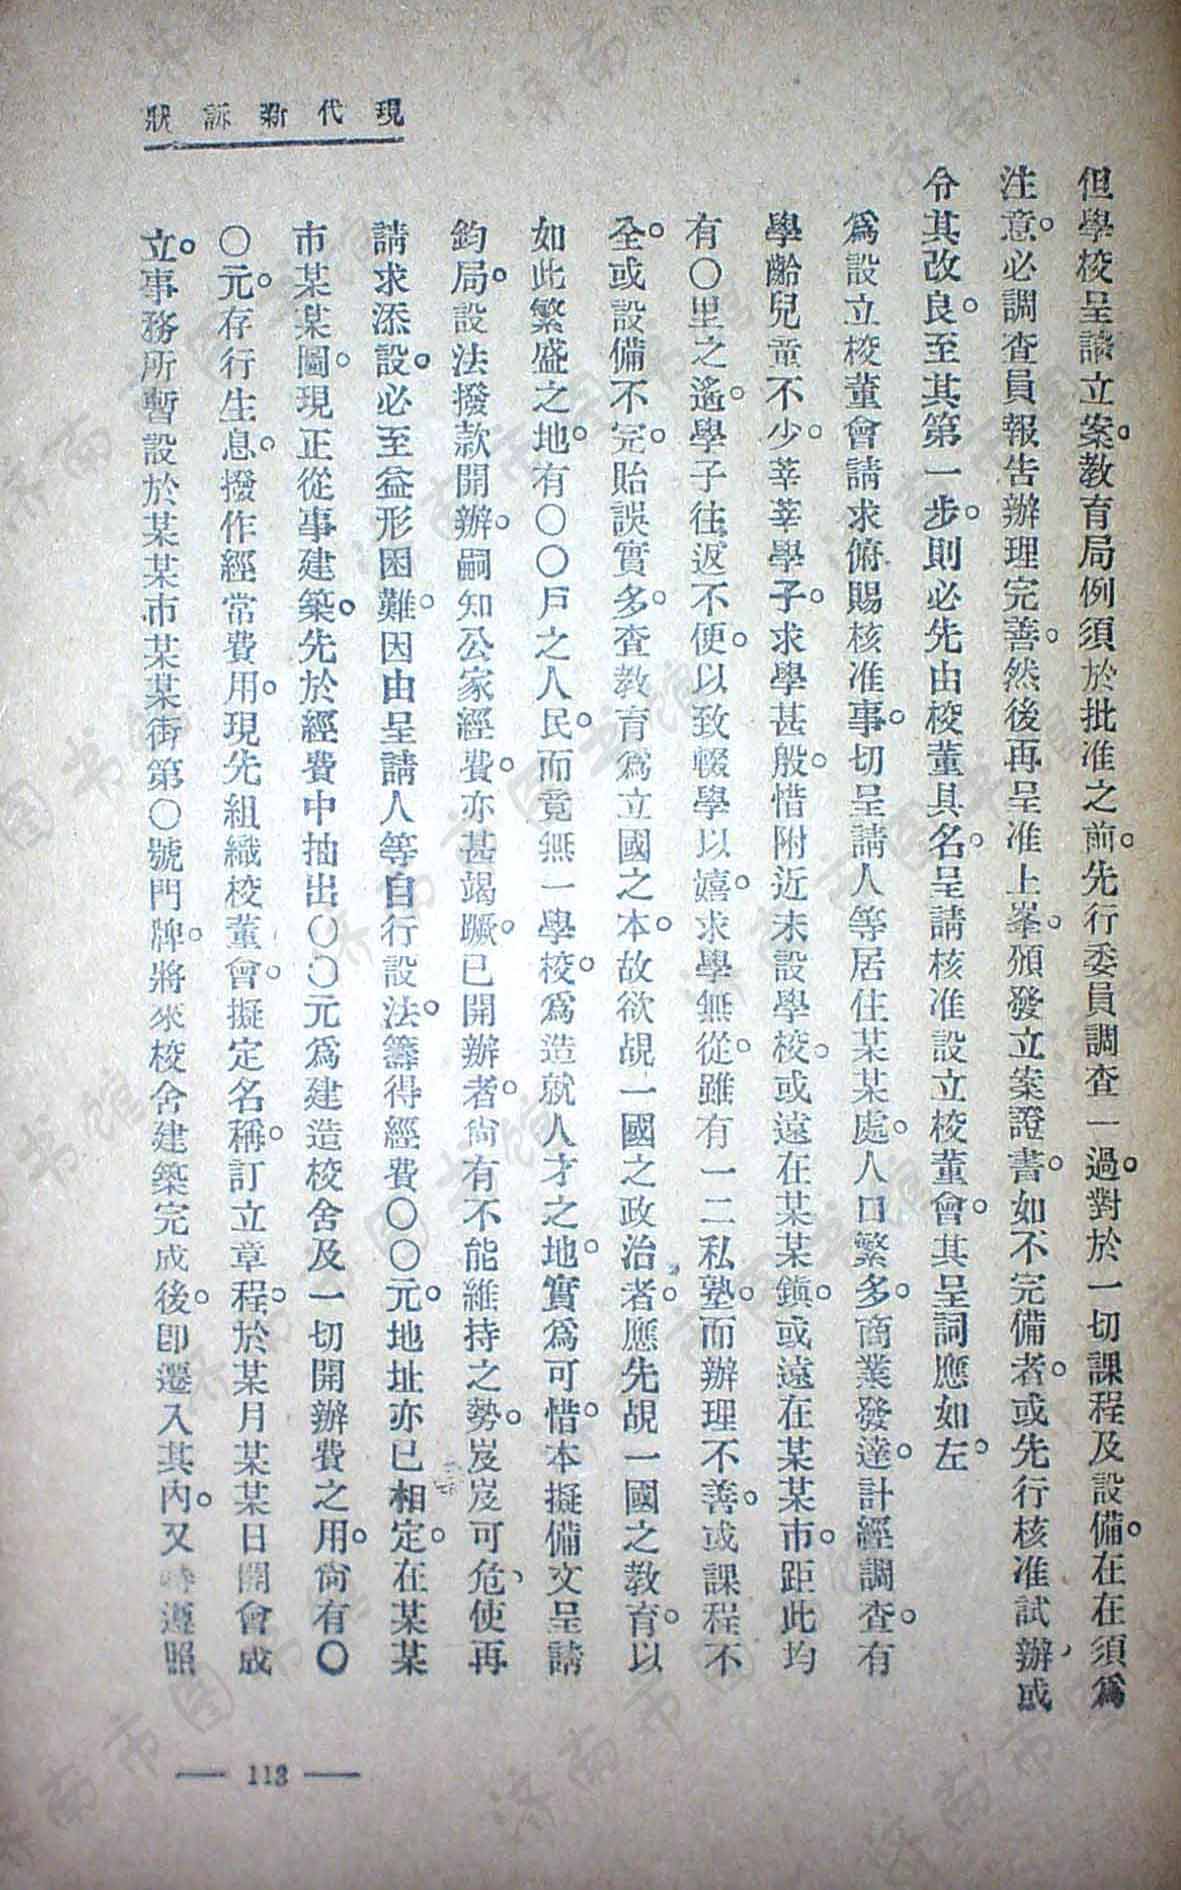 現代新訴狀
但學校呈請立案。教育局例須於批准之前。先行委員調查一過。對於一切課程及設備。在在須爲
注意。必調查員報告辦理完善。然後再呈准上峯。頒發立案證書。如不完備者。或先行核准試辦、或
令其改良。至其第一步。則必先由校董具名。呈請核准設立校董會。其呈詞應如左。
爲設立校董會請求俯賜核准事。切呈請人等居住某某處。人口繁多。商業發達。計經調查。有
學齡兒童不少。莘莘學子。求學甚殷。惜附近未設學校。或遠在某某鎭。或遠在某某市。距此均
有〇里之遙。學子往返不便。以致輟學以嬉。求學無從。雖有一二私塾。而辦理不善。或課程不
全。或設備不完。貽誤實多。查教育爲立國之本。故欲覘一國之政治者。應先覘一國之教育。以
如此繁盛之地。有〇〇戶之人民。而竟無一學校。爲造就人才之地。實爲可惜。本擬備文呈請
鈞局。設法撥款開辦。嗣知公家經費。亦甚竭蹶。已開辦者。尙有不能維持之勢。岌岌可危、使再
請求添設。必至益形困難。因由呈請人等自行設法。籌得經費〇〇元。地址亦已相定。在某某
市某某圖。現正從事建築。先於經費中抽出〇〇元爲建造校舍及一切開辦費之用。尙有〇
〇元。存行生息。撥作經常費用。現先組織校董會。擬定名稱。訂立章程。於某月某某日開會成
立。事務所暫設於某某市某某街第〇號門牌。將來校舍建築完成後。卽遷入其內。又遵照
— 113 —
济南市图书馆